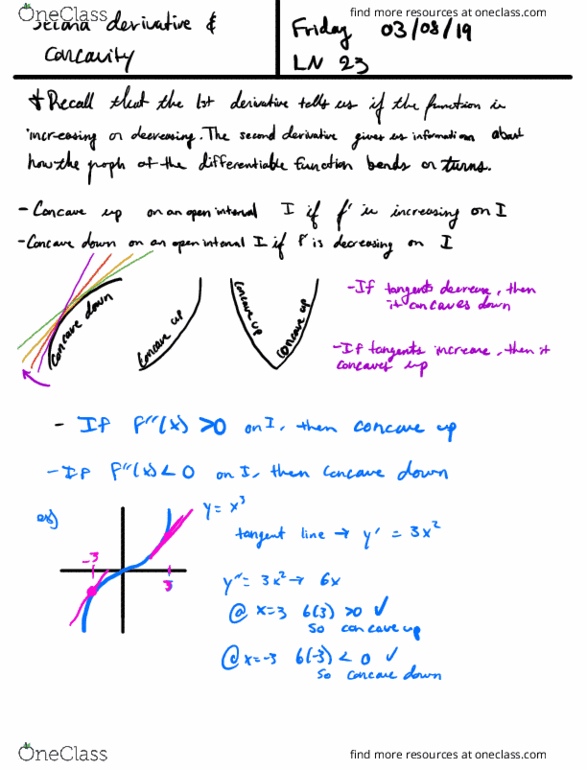 OneClass
find more resources at oneclass.com
Second derivative &
Concavity
Friday 03/08/19
LN 23
Recall that the 1st derivative tells us if the function is
increasing or decreasing. The second derivative gives us information about
how the graph of the differentiable function bends or turns.
- Concave up on an open interval I if f' is increasing on I
- Concave down on an open interval I if f' is decreasing on I
concave down
concave up
concave up
concave up
- If tangents decrease, then
it concaves down
- If tangents increase, then it
concaves up
- If f''(x) >0 on I, then concave up
- If f''(x) < 0 on I, then concave down
ex)
y = x³
tangent line → y' = 3x²
-3
3
y'' = 3x² → 6x
@ x=3 6(3) >0 ✓
so concave up
@ x=-3 6(-3) < 0 ✓
so concave down
OneClass
find more resources at oneclass.com